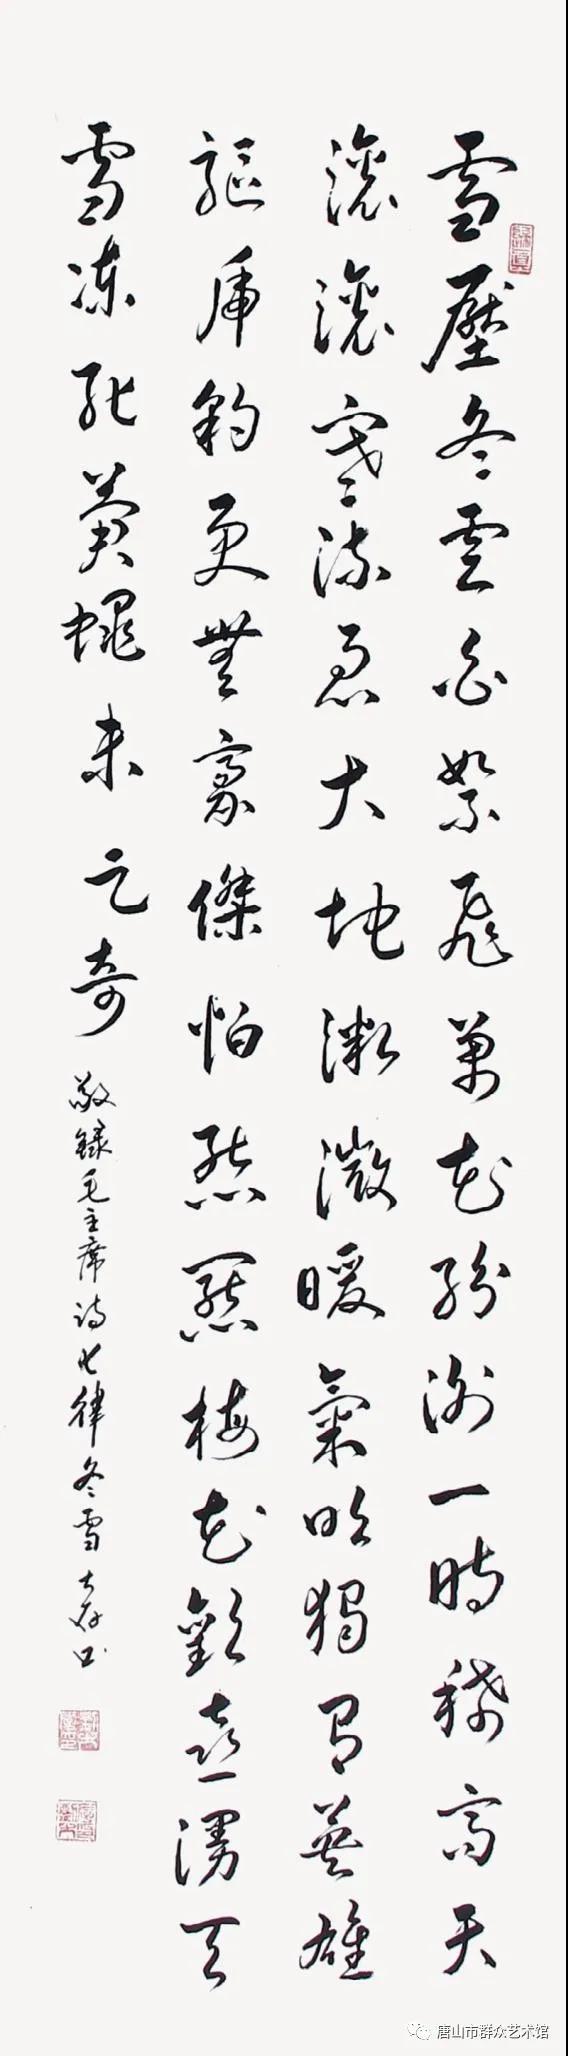 雪壓冬雲白絮飛萬花紛謝一時稀高天
滾滾寒流急大地微微暖氣吹獨有英雄
驅虎豹更無豪傑怕熊羆梅花歡喜漫天
雪凍死蒼蠅未足奇
敬錄毛主席詩七律冬雪
唐山市群众艺术馆